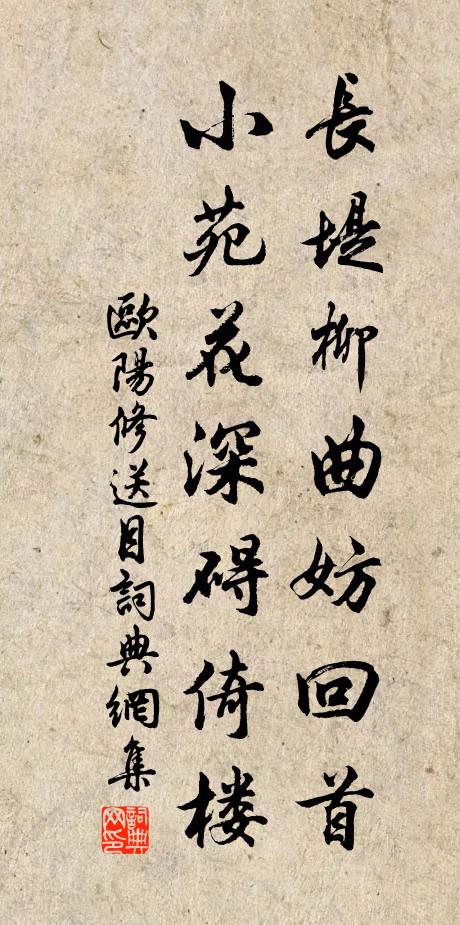 長堤柳曲妨回首
小苑花深碍倚楼
歐陽修送目詞典網集
詞典
网印